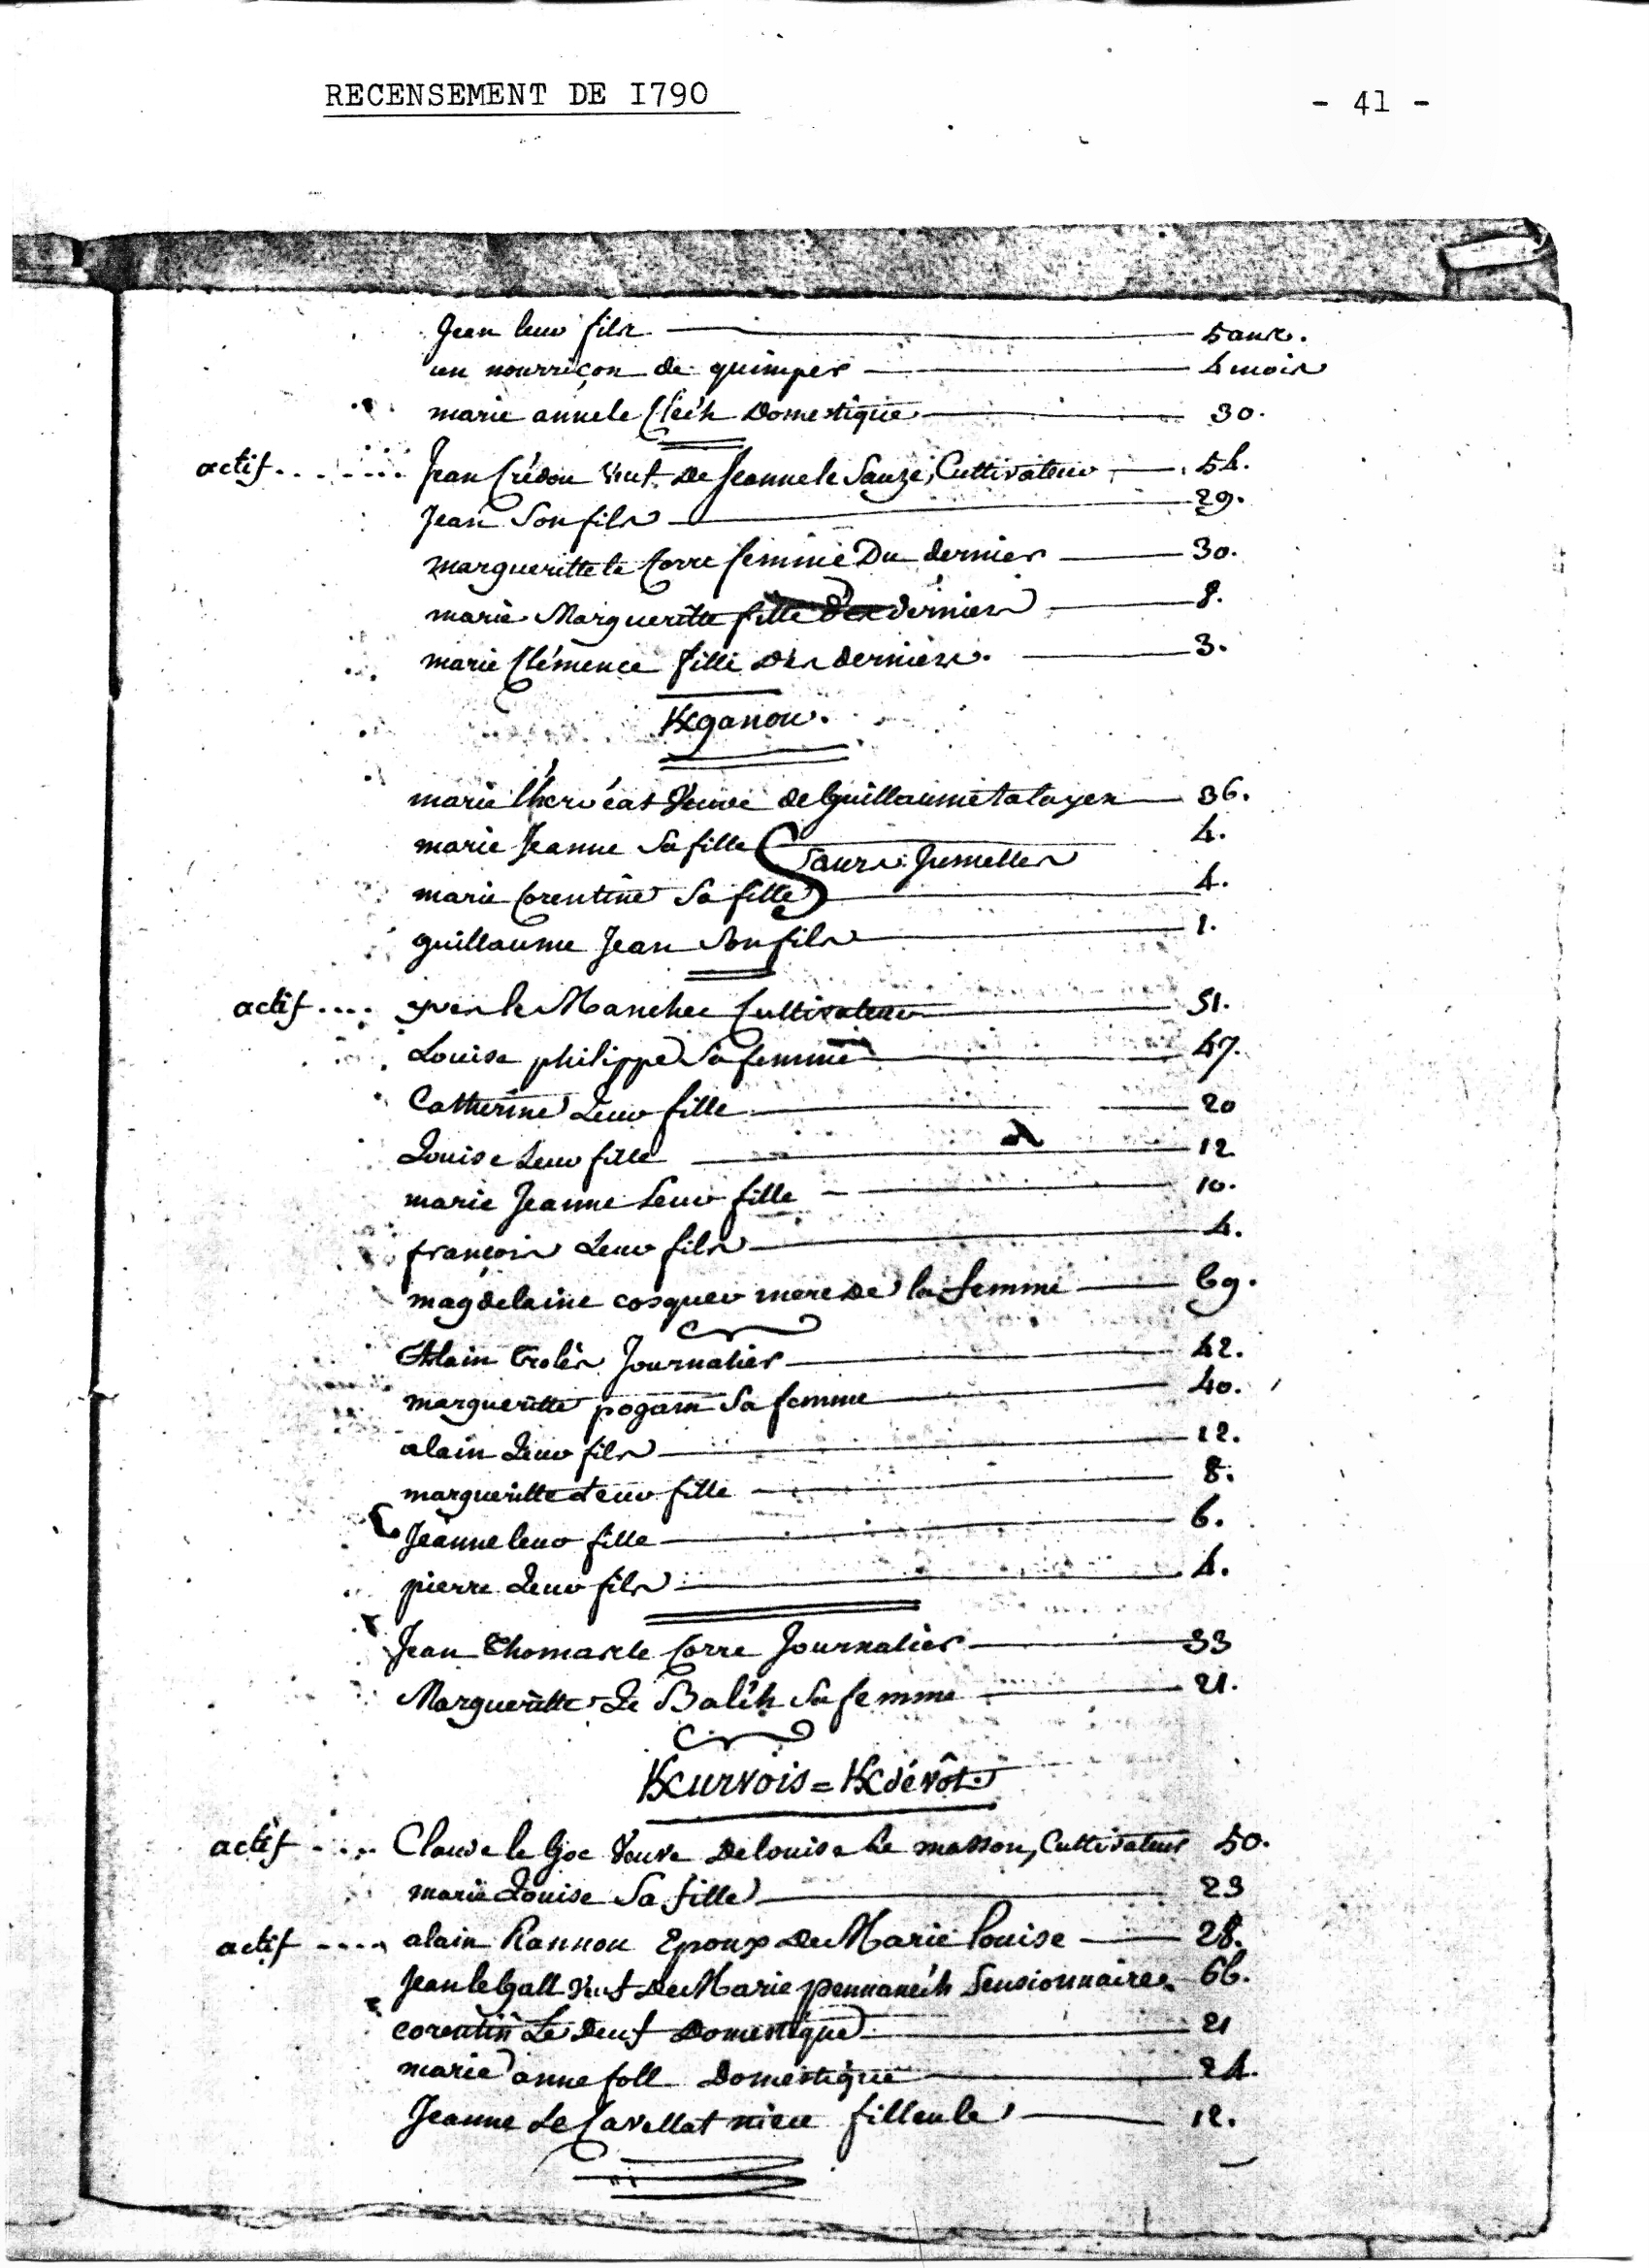 RECENSEMENT DE I790 - 41 -
Jean leur fils 5 ans.
un nourriçon de quimper 4 mois
marie anne le Cléch Domestique 30.
actif....... Jean Crédou Veuf De Jeanne le Sauze, Cultivateur 54.
Jean Son fils 29.
margueritte le Corre femme Du dernier 30.
marie Margueritte fille Des derniers 8.
marie Clémence fille Des derniers. 3.
Kganou.
marie l'hervéas Veuve de Guillaume talayer 36.
marie Jeanne Sa fille 4.
Sœurs Jumelles
marie Corentine Sa fille 4.
guillaume Jean Son fils 1.
actif.... yves le Manchec Cultivateur 51.
Louise philippe Sa femme 47.
Catherine Leur fille 20
Louise Leur fille 12
marie Jeanne Leur fille 10.
françois Leur fils 4.
magdelaine cosquer mere De la femme 69.
Alain Crolès Journalier 42.
margueritte pogam Sa femme 40.
alain Leur fils 12.
margueritte Leur fille 8.
Jeanne leur fille 6.
pierre Leur fils 4.
Jean Thomas le Corre Journalier 33
Margueritte Le Baléh Sa femme 21.
Kurvois = Kdévôt.
actif .... Claude le Goc Veuve De louise Le masson, Cultivateur 50.
marie Louise Sa fille 23
actif .... alain Rannou Epoux De Marie louise 28.
Jean le Gall Veuf De Marie pennanéch Pensionnaire 66.
corentin Le Deuf Domestique 21
marie anne foll Domestique 24.
Jeanne Le Cavellat filleule 12.